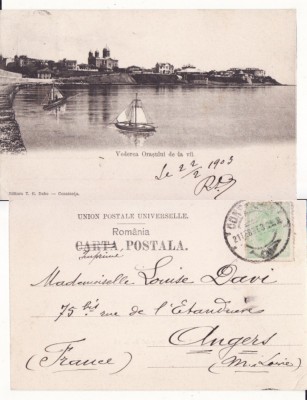 Vederea Orașului de la vii
Le 22/2 1903
Editura T. G. Dabo — Constanța.
UNION POSTALE UNIVERSELLE.
România
CARTA POSTALA.
Imprimé
CONST
Mademoiselle Louise Davi
75 bis rue de l'Etanduère
Angers
(France) (M. Loire)